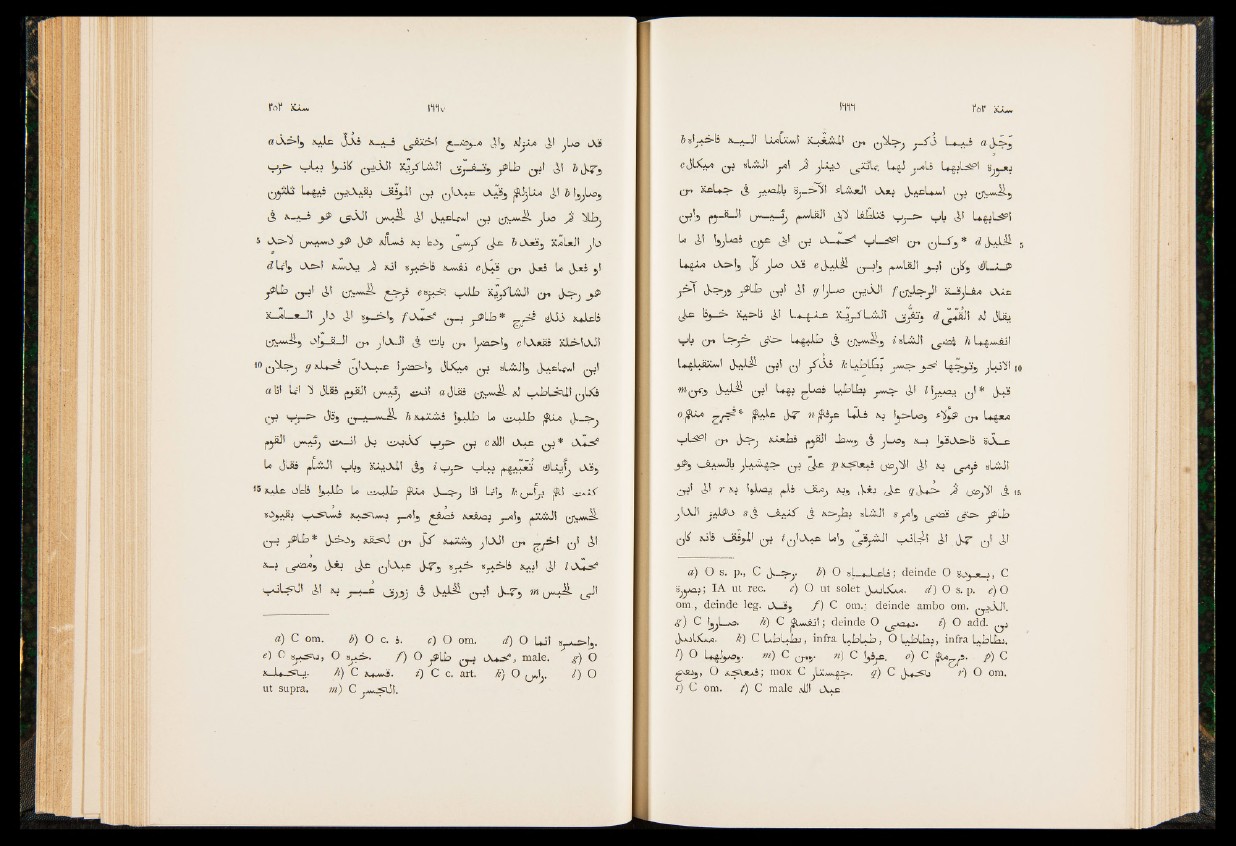 ١٦٦٦ سنة ٢٥٢
وَجَلٍ a فيما ذُكر رجلان من المشغّبة استأمنا اليه فاخبراه b
بعورة اصحابهما فامر لهما بمائتى دينار ثم امر الشاه بن ميكال c
والحسين بن اسماعيل بعد العشاء الآخرة بالمصير فى جماعة من
اصحابهما الى باب حرب فتلطّفا لأبى القاسم رئيس القوم وابن
5 الخليل d * وكان من اصحاب محمد بن ابى عون فصاروا الى ما
هناك وكان ابو القاسم وابن الخليل e قد صار كلّ واحد منهما
عند مفارقة الرجلين f الذين صارا g الى ابن طاهر ورجل آخر
يقال له القُمّىّ d وتفرّق الشاكريّة عنهما الى ناحية خوفا على
انفسهما h فمضى الشاه i والحسين فى طلبهما حتى خرجا من باب
10 الانبار وتوجّها نحو جسر بَطاطِيا k فذُكر ان ابن الخليل استقبلهما
قبل *ان يصيرا l الى جسر بطاطيا فصاح بهما ابن الخليل وبمن m
معهما من هؤلاء وصاحوا به فلمّا عرفهم n حمل عليهم *فجرح منهم o
عدّة فاحدقوا به وصار فى وسط القوم فطعنه رجل من اصحاب
الشاه فرمى به الى الارض فبعجه p علىّ بن جهشيار بالسيف وهو
15 فى الارض ثم حُمل q على بغل وبه رمق فلم يصلوا به r الى ابن
طاهر حتى قضى وامر s الشاه بطرحه فى كنيف فى s دهليز الدار
الى ان حمل الى الجانب الشرقىّ واما عبدان t بن الموفّق فانه كان
a) O s. p., C رجل. b) O فاعلماه; deinde O بعوده, C
بصورة; IA ut rec. c) O ut solet ميكائيل. d) O s. p. e) O
om., deinde leg. وقد. f) C om.; deinde ambo om. الذين.
g) C صاروا. h) C انفسهم; deinde O يمضى. i) O add. بن
ميكائيل. k) C بطباطيا, infra بطباطيا, O بطاطيا, infra بطاطيا.
l) O وصولهما. m) C ومن. n) C عرفوا. o) C فرجمهم. p) C
وبعج, O فبعجه; mox C جهستار. q) C بحمل r) O om.
s) C om. t) C male عبد الله
سنة ٢٥٢ ١٦٦٧
قد صار الى منزله والى موضع اختفى فيه فدُلّ عليه وأخذ a
وحمل b الى ابن طاهر وتفرّق الشاكريّة الذين كانوا بباب حرب
وصاروا b الى منازلهم وقيّد عبدان بن الموفّق بقيدين فيهما ثلثون
رطلا ثم صار الحسين بن اسماعيل الى الحبس الذى هو فيه فى
5 دار العامّة وقعد b على كرسىّ ودعا به فسأله هل هو دسيس لأحد
او فعل ما فعل من قِبَل c نفسه فاخبره انه لم يدسّه احد وانما d
هو رجل من الشاكريّة طلب بخبزه e فرجع الحسين الى ابن طاهر
فاعلمه ذلك فخرج *طاهر بن محمد f واخوه الى دار العامّة
الداخلة فقعدا e واحضروا من بات فى الدار من القوّاد والحسين
10 ابن اسماعيل والشاه بن ميكال واحضروا عبدان فحمله g رجلان
فكان المخاطب له الحسين فقال a انت رئيس القوم فقال لا انما انا a
رجل منهم طلبت ما طلبوا فشتمه h الحسين وقال حرب بن
محمد *بن عبد الله c بن حرب كذبت بل انت رئيس القوم
وقد رأيناك تُعَبّيهم بباب حرب i وفى المدينة وباب الشأم فقال ما
15 كنت لهم برأس k وانما انا رجل منهم طلبت ما طلبوا فاعاد عليه
الحسين الشتم وامر بصفعه فصُفع وامر بسحبه فسُحب بقيوده
الى ان اخرج من الدار وشتمه كلّ من لحقه ودخل *طاهر بن
محمد l الى ابيه فاخبره خبره وحمل عبدان على بغل ومُضى به
الى الحبس m وحمل ابن الخليل فى زورق عُبر به الى الجانب
a) C om. b) O c. ف. c) O om. d) O واخبره انما.
e) C بخبره, O خبزه. f) O محمد بن طاهر, male. g) O
يحمله. h) C فسمه. i) C c. art. k) O راس. l) O
ut supra. m) C الجسر.